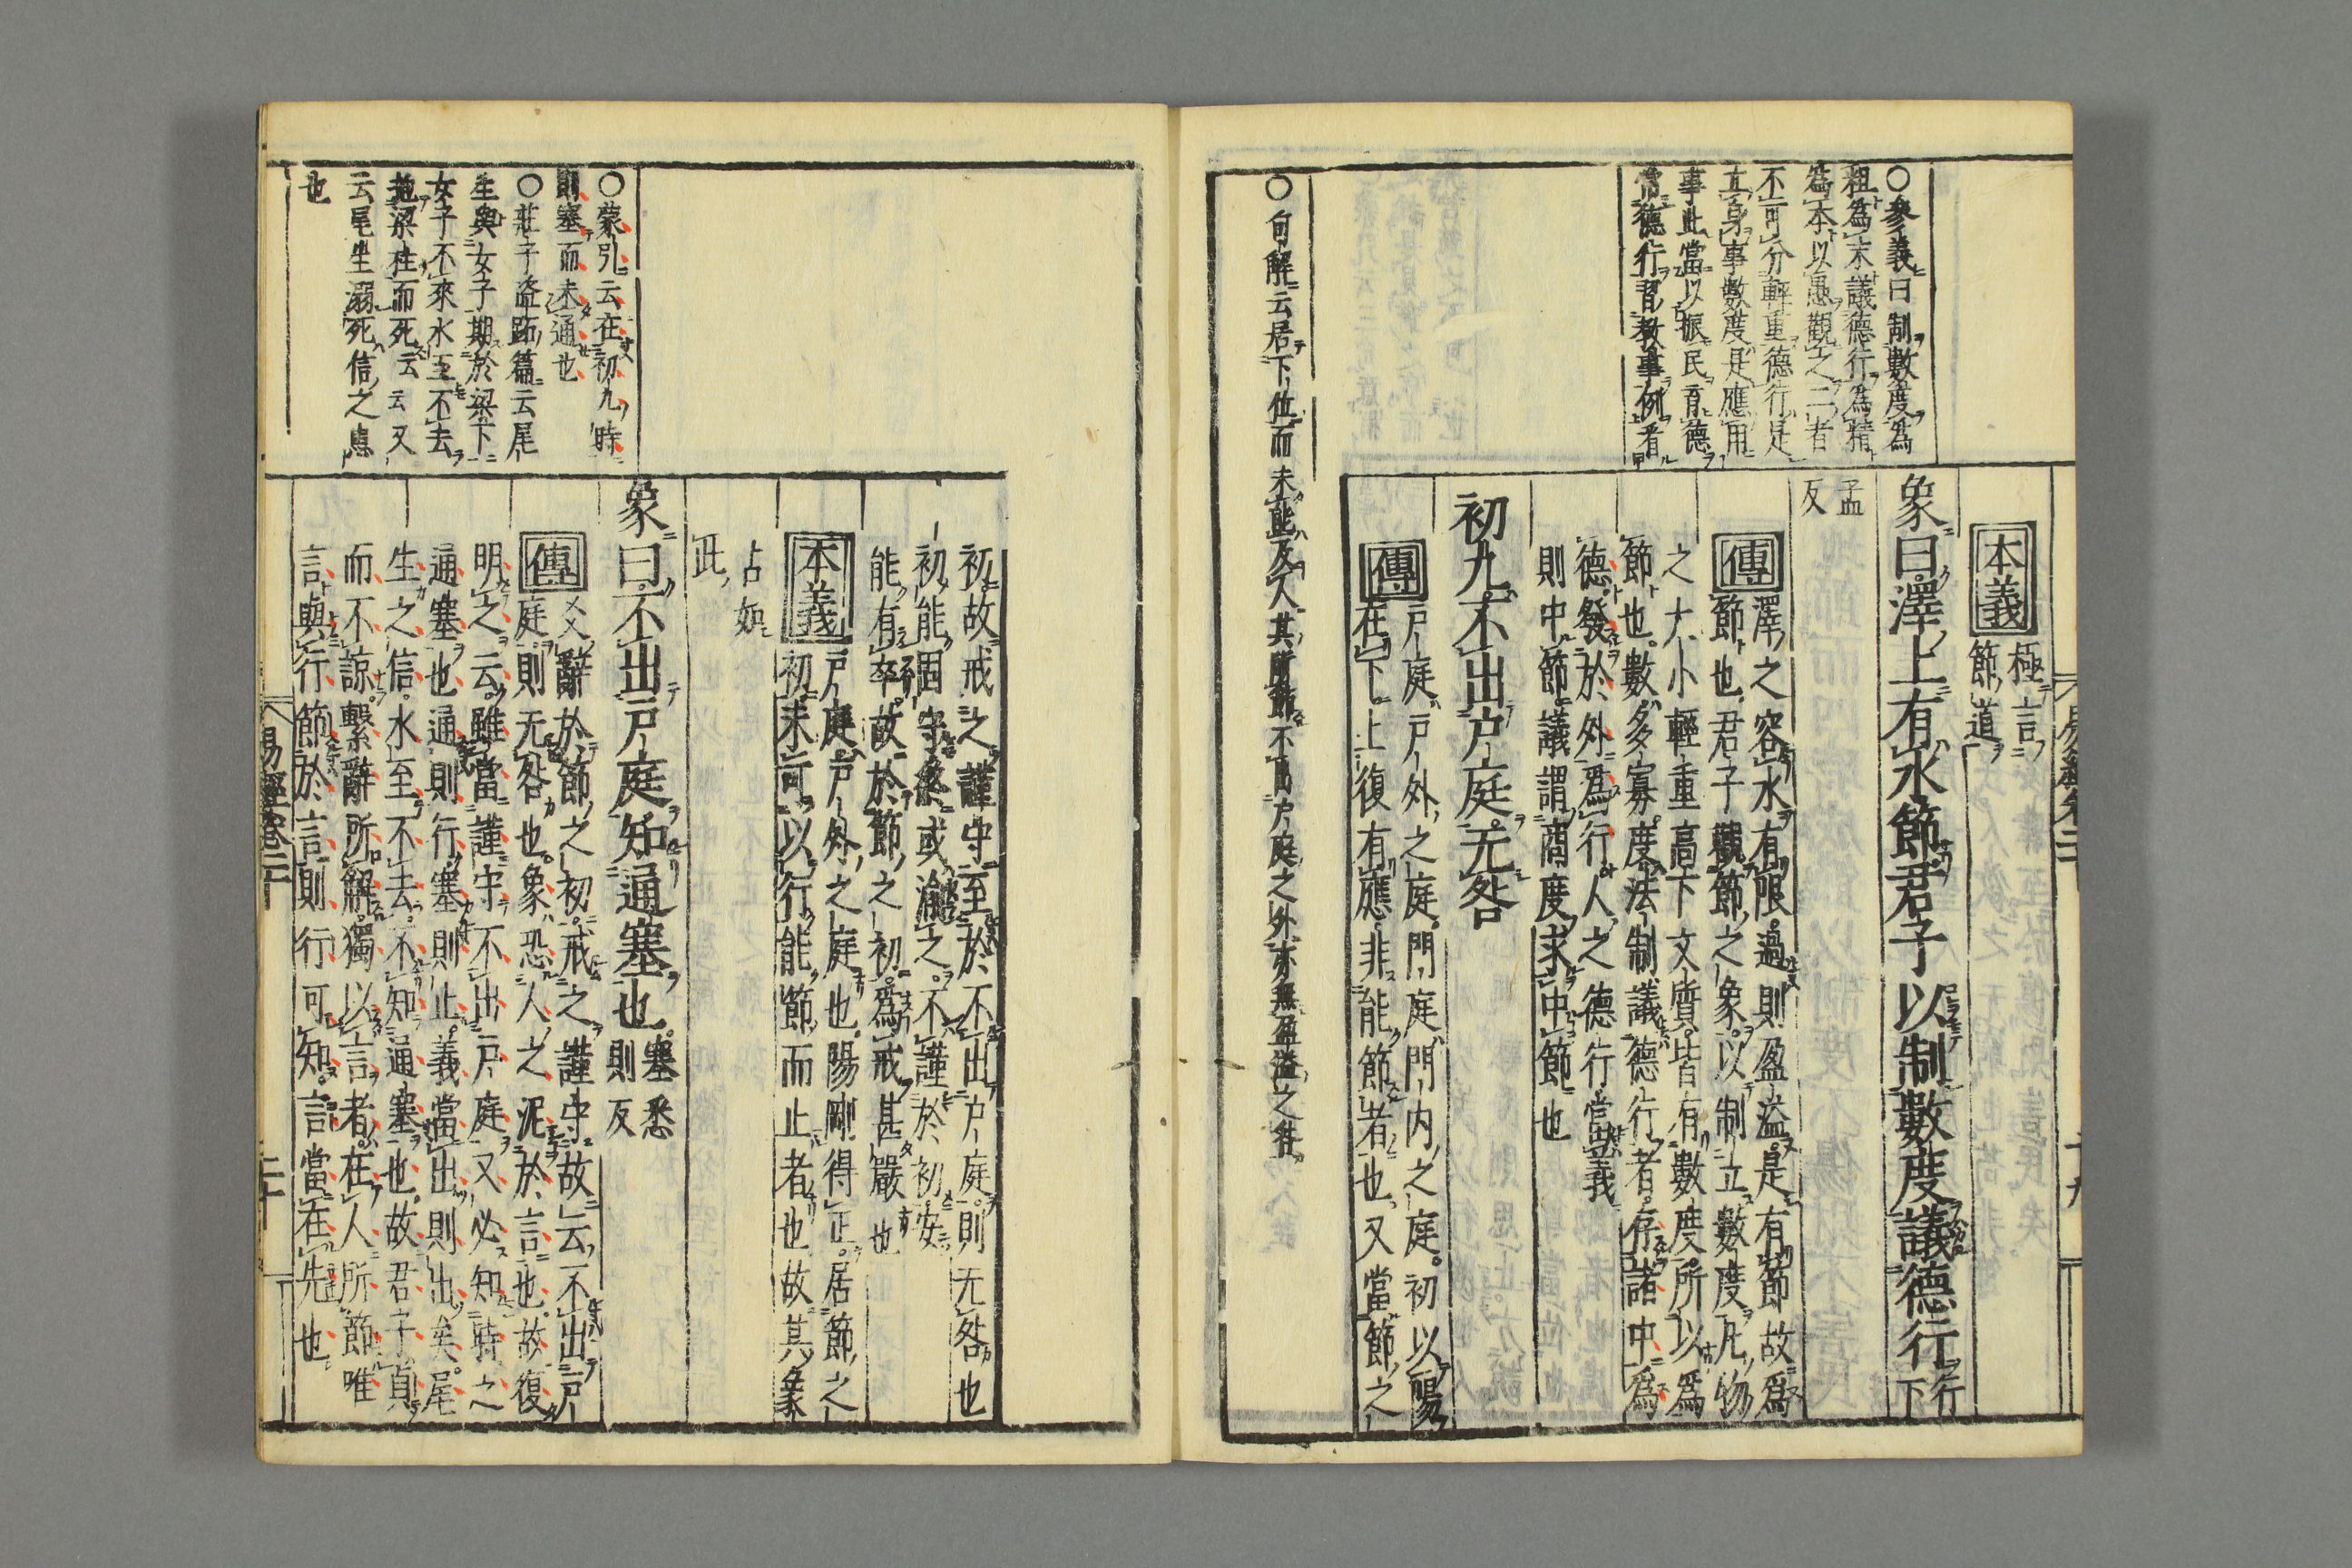 ○參義曰制數度爲
粗爲末議德行爲精
爲本以愚觀之二者
不可分輕重德行是
立身事數度是應用
事此當以振民育德
常德行習教事例看
本義
極言
節道
象曰澤上有水節君子以制數度議德行
行下
孟
反
傳
澤之容水有限過則盈溢是有節故爲
節也君子觀節之象以制立數度凡物
之大小輕重高下文質皆有數度所以爲
節也數多寡度法制議德行者存諸中爲
德發於外爲行人之德行當義
則中節議謂商度求中節也
初九不出户庭无咎
傳
户庭户外之庭門庭門内之庭初以陽
在下上復有應非能節者也又當節之
○句解云居下位而未能及人其所節不出户庭之外亦無盈溢之咎
初故戒之謹守至於不出户庭則无咎也
初能固守終或渝之不謹於初安
能有卒故於節之初爲戒甚嚴也
本義
户庭户外之庭也陽剛得正居節之
初未可以行能節而止者也故其象
占如
此
象曰不出户庭知通塞也
塞悉
則反
傳
爻辭於節之初戒之謹守故云不出户
庭則无咎也象恐人之泥於言也故復
明之云雖當謹守不出户庭又必知時之
通塞也通則行塞則止義當出則出矣尾
生之信水至不去不知通塞也故君子貞
而不諒繫辭所解獨以言者在人所節唯
言與行節於言則行可知言當在先也
○蒙引云在初九時
則塞而未通也
○莊子盗跖篇云尾
生與女子期於梁下
女子不來水至不去
抱梁柱而死云云又
云尾生溺死信之患
也
易經卷二十
二十